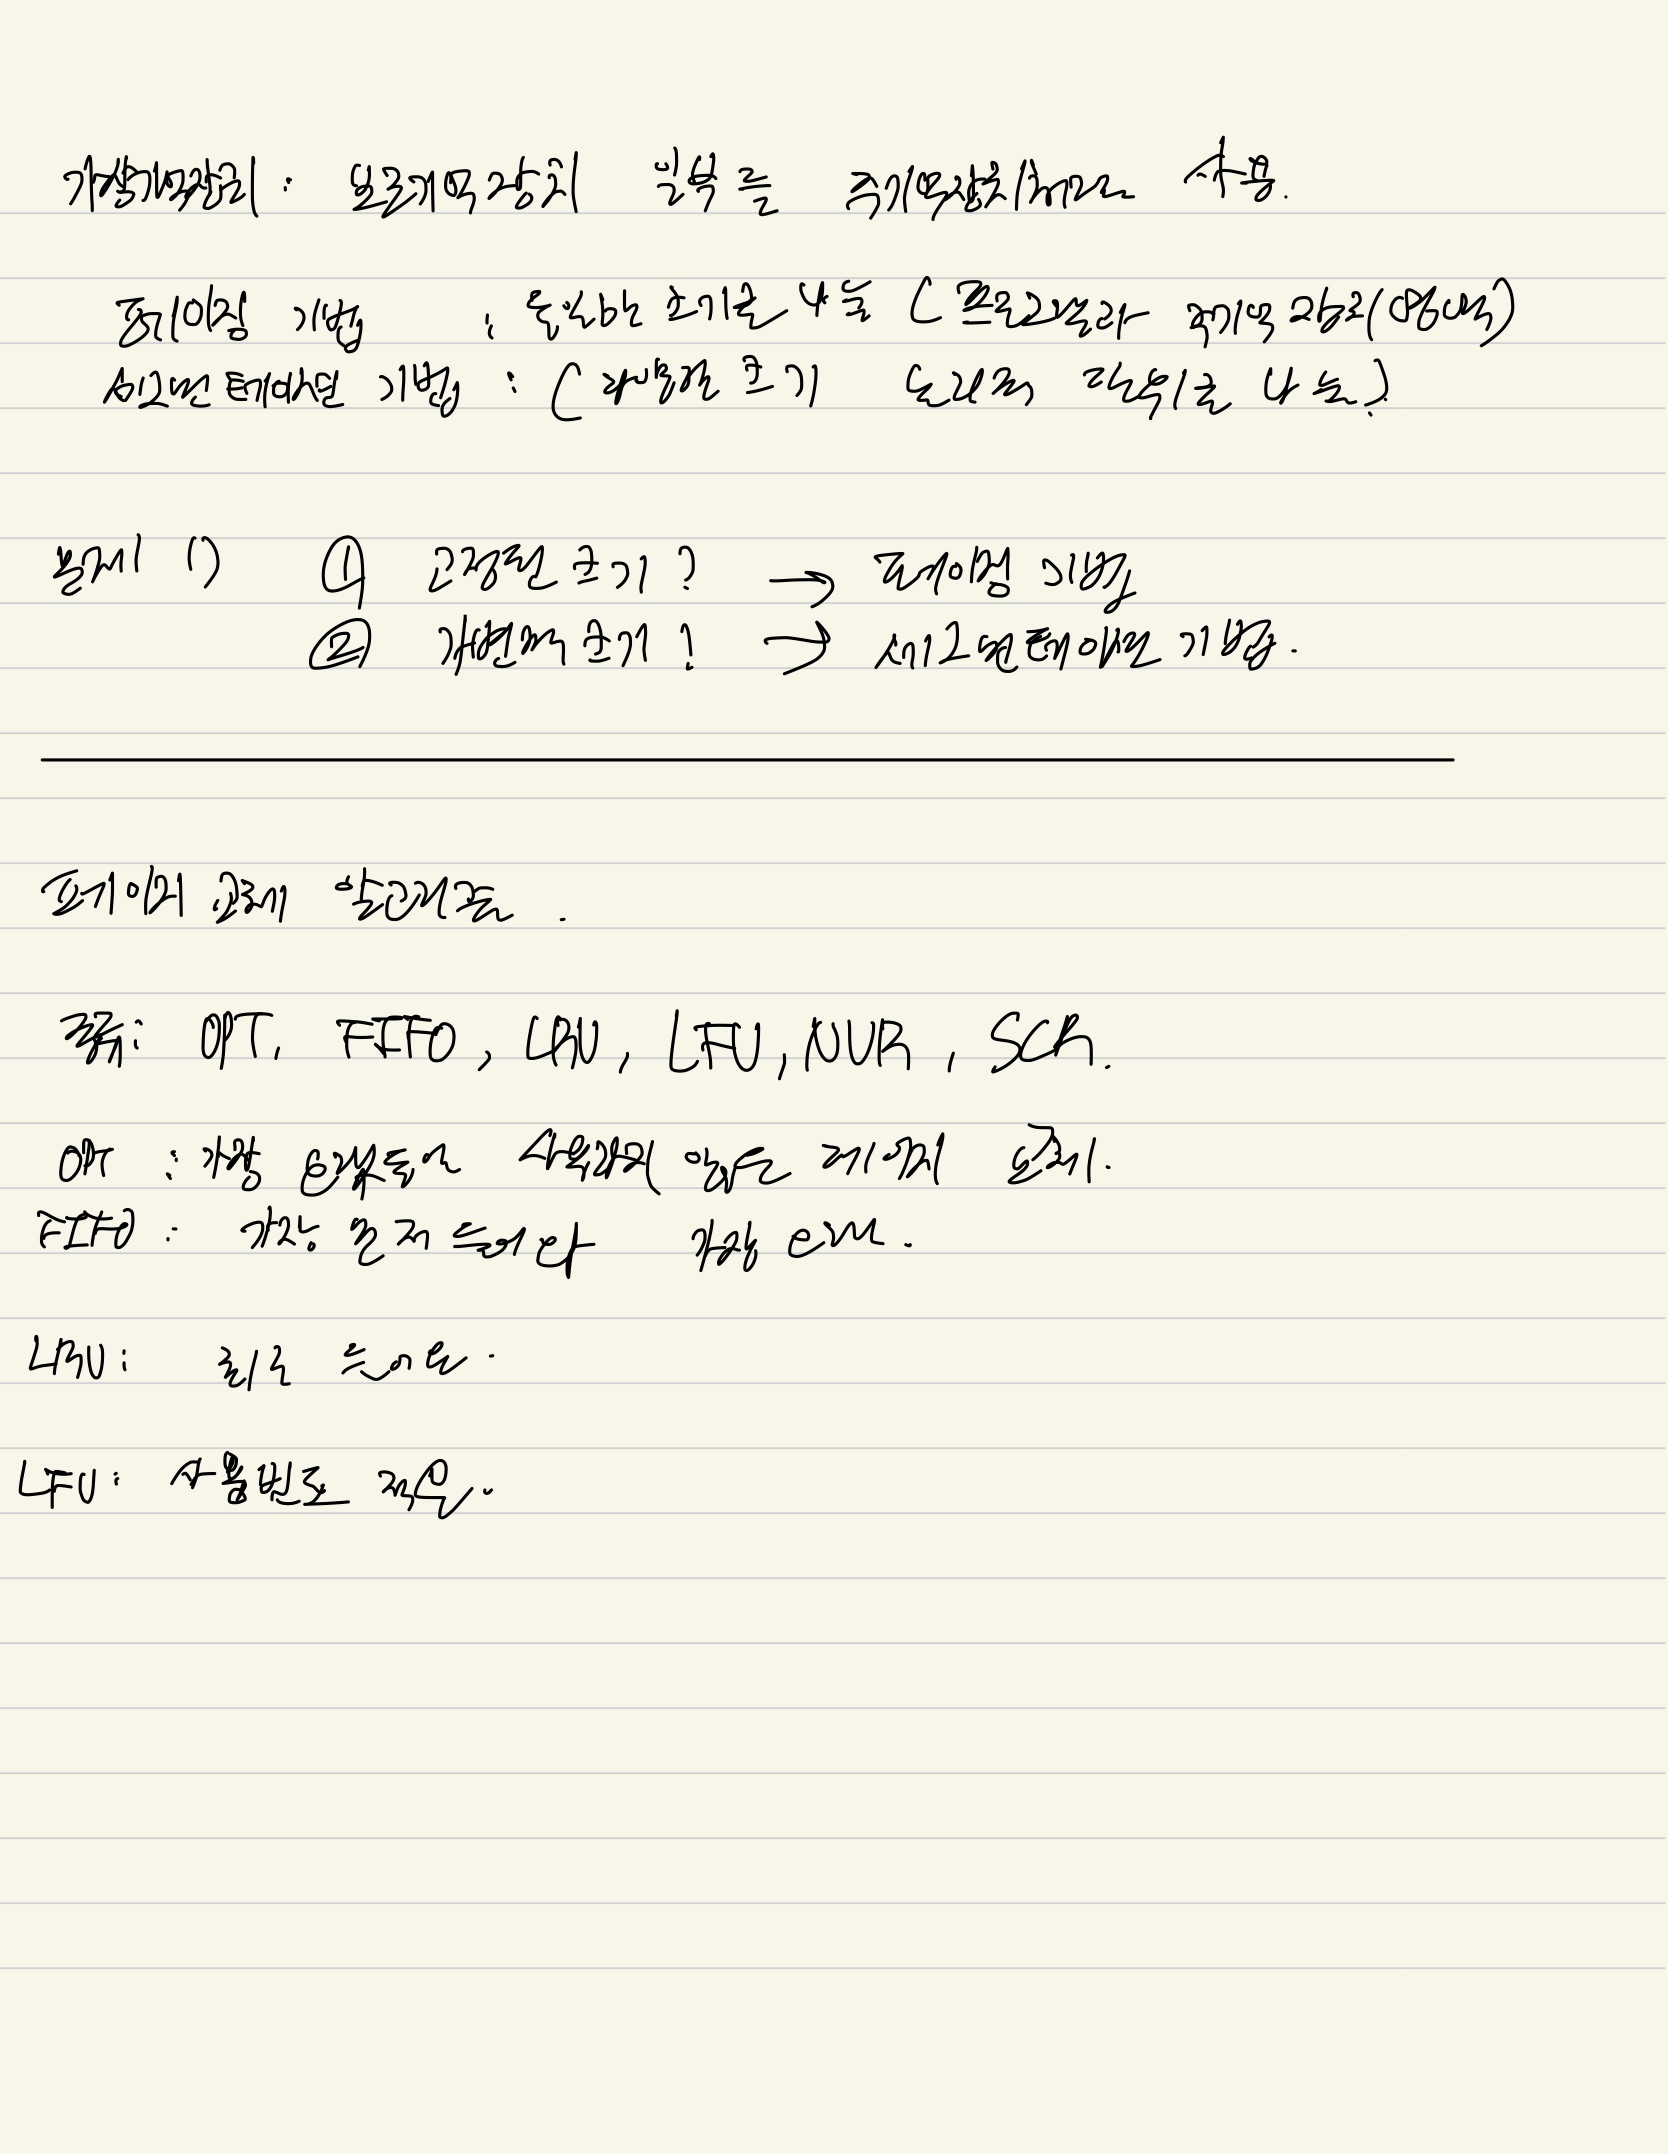 가상기억장치 : 보조기억장치 일부를 주기억장치처럼 사용.
페이징 기법 : 동일한 크기로 나눔 ( 프로그램과 주기억장치 영역)
세그먼테이션 기법 : ( 다양한 크기 논리적 단위로 나눔.)
문제 1) ① 고정된 크기? → 페이징 기법
② 가변적 크기? → 세그먼테이션 기법.
페이지 교체 알고리즘.
종류: OPT, FIFO, LRU, LFU, NUR, SCR.
OPT : 가장 오랫동안 사용하지 않는 페이지 교체.
FIFO : 가장 먼저 들어 가장
LRU : 최근
LFU : 사용빈도 적은.